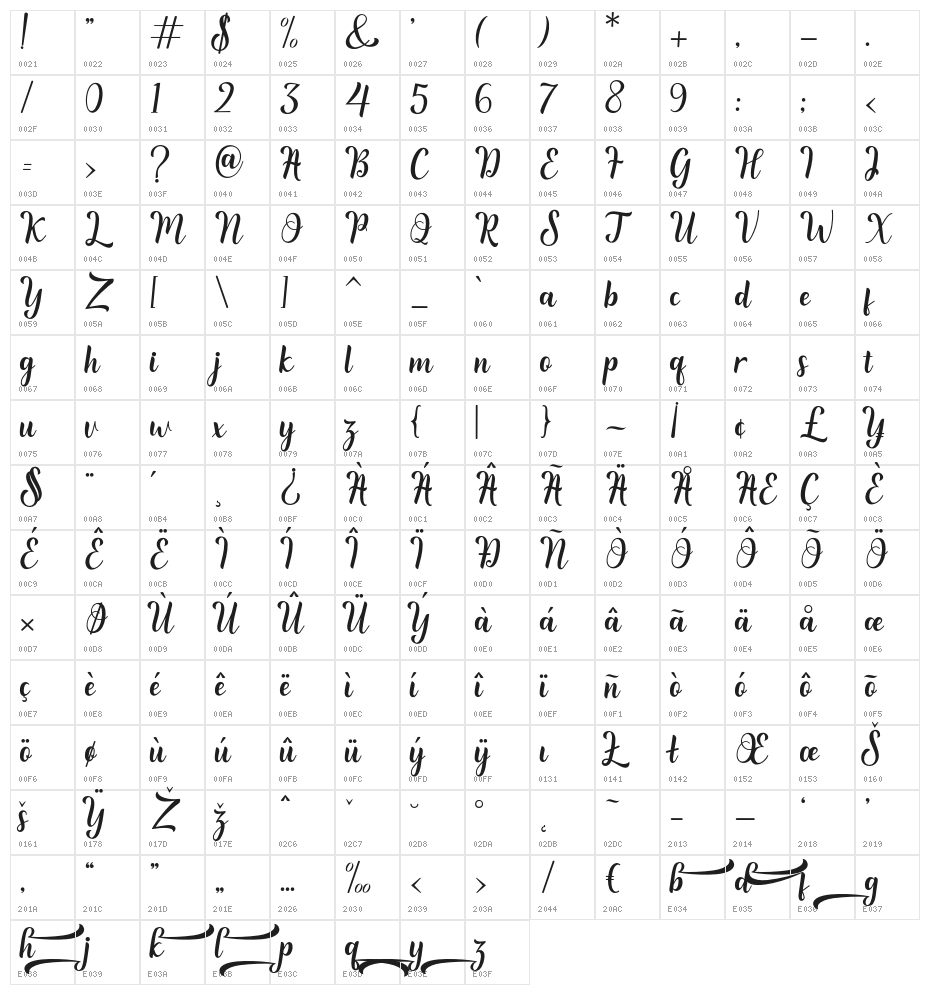 ! " # $ % & ' ( ) * + , – .
0021 0022 0023 0024 0025 0026 0027 0028 0029 002A 002B 002C 002D 002E
/ 0 1 2 3 4 5 6 7 8 9 : ; <
002F 0030 0031 0032 0033 0034 0035 0036 0037 0038 0039 003A 003B 003C
= > ? @ A B C D E F G H I J
003D 003E 003F 0040 0041 0042 0043 0044 0045 0046 0047 0048 0049 004A
K L M N O P Q R S T U V W X
004B 004C 004D 004E 004F 0050 0051 0052 0053 0054 0055 0056 0057 0058
Y Z [ \ ] ^ _ ` a b c d e f
0059 005A 005B 005C 005D 005E 005F 0060 0061 0062 0063 0064 0065 0066
g h i j k l m n o p q r s t
0067 0068 0069 006A 006B 006C 006D 006E 006F 0070 0071 0072 0073 0074
u v w x y z { | } ~ ¡ ¢ £ ¥
0075 0076 0077 0078 0079 007A 007B 007C 007D 007E 00A1 00A2 00A3 00A5
§ ¨ ´ ¸ ¿ À Á Â Ã Ä Å Æ Ç È
00A7 00A8 00B4 00B8 00BF 00C0 00C1 00C2 00C3 00C4 00C5 00C6 00C7 00C8
É Ê Ë Ì Í Î Ï Ð Ñ Ò Ó Ô Õ Ö
00C9 00CA 00CB 00CC 00CD 00CE 00CF 00D0 00D1 00D2 00D3 00D4 00D5 00D6
× Ø Ù Ú Û Ü Ý à á â ã ä å æ
00D7 00D8 00D9 00DA 00DB 00DC 00DD 00E0 00E1 00E2 00E3 00E4 00E5 00E6
ç è é ê ë ì í î ï ñ ò ó ô õ
00E7 00E8 00E9 00EA 00EB 00EC 00ED 00EE 00EF 00F1 00F2 00F3 00F4 00F5
ö ø ù ú û ü ý ÿ ı Ł ł Œ œ Š
00F6 00F8 00F9 00FA 00FB 00FC 00FD 00FF 0131 0141 0142 0152 0153 0160
š Ÿ Ž ž ˆ ˇ ˘ ˚ ˛ ˜ – — ‘ ’
0161 0178 017D 017E 02C6 02C7 02D8 02DA 02DB 02DC 2013 2014 2018 2019
‚ “ ” „ … ‰ ‹ › ⁄ € b d f g
201A 201C 201D 201E 2026 2030 2039 203A 2044 20AC E034 E035 E036 E037
h j k l p q y z
E038 E039 E03A E03B E03C E03D E03E E03F